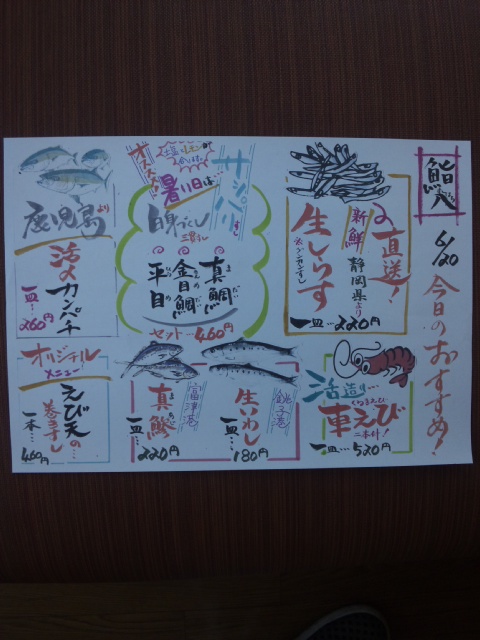 6/20
今日のおすすめ!
直送!
新鮮
静岡県より
生しらす
一皿…220円
活造り…
車えび
二本付!
一皿…520円
オススメ!
暑い日は…
サッパリ
白身づくし
三貫
真鯛
金目鯛
平目
セット…460円
銚子港
生いわし
一皿…180円
富津港
真鯵
一皿…220円
鹿児島より
活〆カンパチ
一皿…260円
オリジナル
メニュー
えび天の…
巻きずし
一本…460円